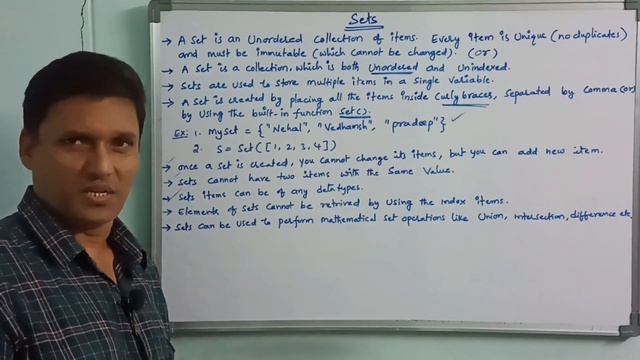 Sets
→ A Set is an Unordered collection of items. Every item is Unique (no duplicates)
and must be immutable (which cannot be changed). (or)
→ A Set is a collection, which is both Unordered and Unindexed.
→ Sets are used to store multiple items in a Single Variable.
→ A Set is created by placing all the items inside Curly braces, Separated by Comma (or)
by Using the built-in function Set().
Ex: 1. Myset = {"Nehal", "Vedhansh", "pradeep"} ✓
2. S = Set([1, 2, 3, 4])
→ once a Set is created, you cannot change its items, but you can add new item.
→ Sets cannot have two items with the Same Value.
→ Sets items can be of any datatypes.
→ Elements of Sets cannot be retrived by Using the index items.
→ Sets can be used to perform mathematical Set operations like Union, intersection, difference etc.